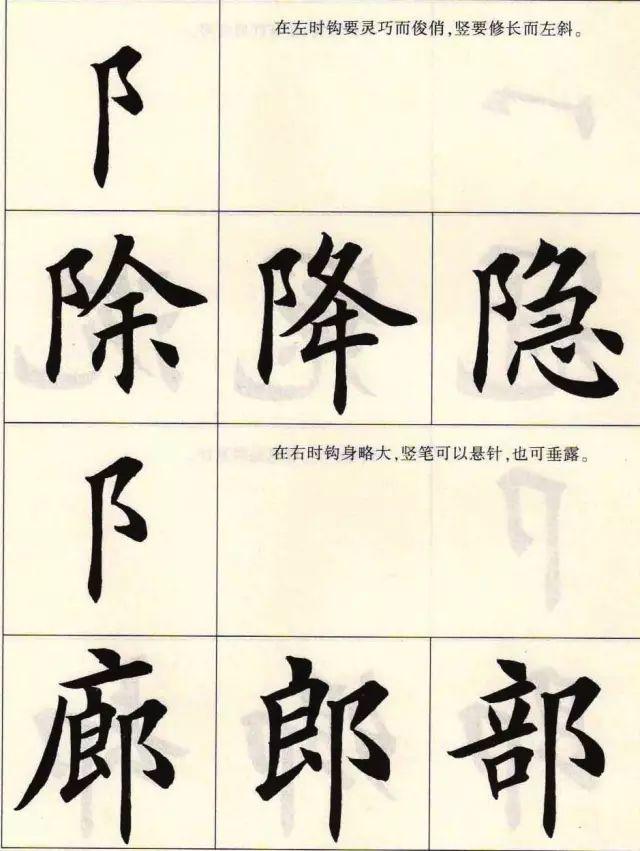 在左时钩要灵巧而俊俏,竖要修长而左斜。
阝
除 降 隐
在右时钩身略大,竖笔可以悬针,也可垂露。
阝
廊 郎 部